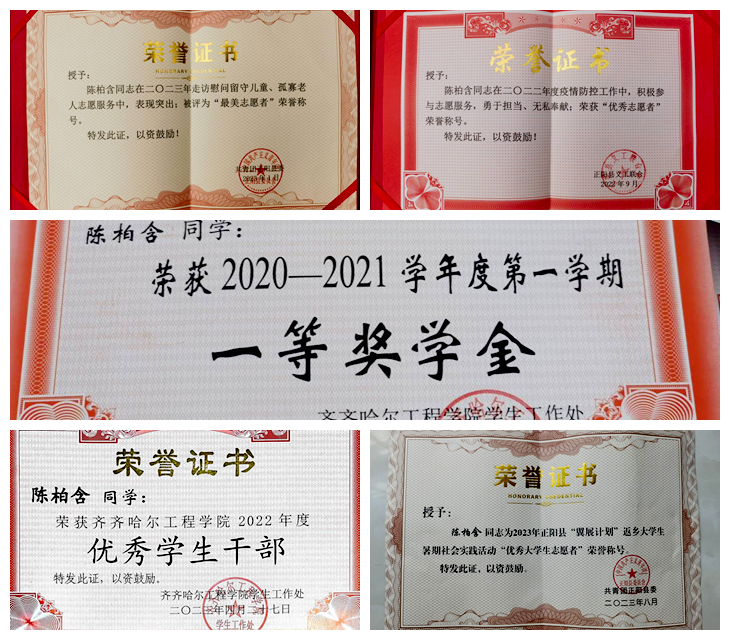 荣誉证书
HONORARY CREDENTIAL
授予:
陈柏含同志在二〇二三年走访慰问留守儿童、孤寡老
人志愿服务中,表现突出;被评为“最美志愿者”荣誉称
号。
特发此证,以资鼓励!
共青团正阳县委
荣誉证书
授予:
陈柏含同志在二〇二二年度疫情防控工作中,积极参
与志愿服务,勇于担当、无私奉献;荣获“优秀志愿者”
荣誉称号。
特发此证,以资鼓励!
正阳县义工联合
2022年9月
陈柏含 同学:
荣获2020—2021学年度第一学期
一等奖学金
齐齐哈尔工程学院学生工作处
荣誉证书
陈柏含 同学:
荣获齐齐哈尔工程学院2022年度
优秀学生干部
特发此证,以资鼓励。
齐齐哈尔工程学院学生工作处
二〇二三年四月二十七日
学生工作处
荣誉证书
HONORARY CREDENTIAL
授予:
陈柏含 同志为2023年正阳县“翼展计划”返乡大学生
暑期社会实践活动“优秀大学生志愿者”荣誉称号。
特发此证,以资鼓励。
共青团正阳县委
二〇二三年八月